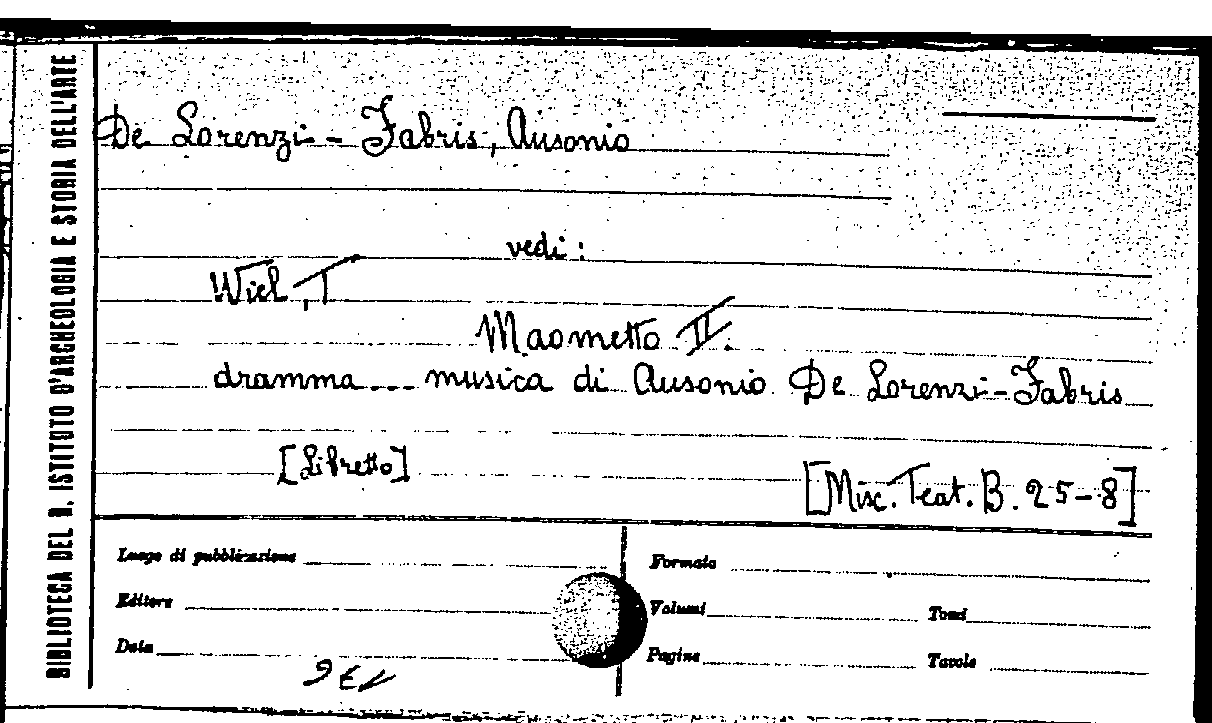 BIBLIOTECA DEL R. ISTITUTO D'ARCHEOLOGIA E STORIA DELL'ARTE
De Lorenzi-Fabris, Ausonio
vedi:
Wiel, T
Maometto II.
dramma... musica di Ausonio De Lorenzi-Fabris
[Libretto]
[Misc. Teat. B. 25-8]
Luogo di pubblicazione
Formato
Editore
Volumi
Tomi
Data
Pagine
Tavole